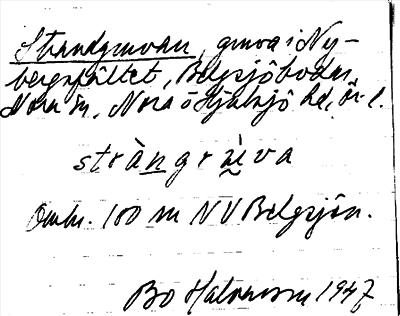 Strandgruvan, gruva i Ny-
bergsfältet, Belgsjöbodar,
Nora sn, Nora o Hjulsjö hd, Ör. l.
stràngrùva
Omkr. 100 m NV Belgsjön.
Bo 1947